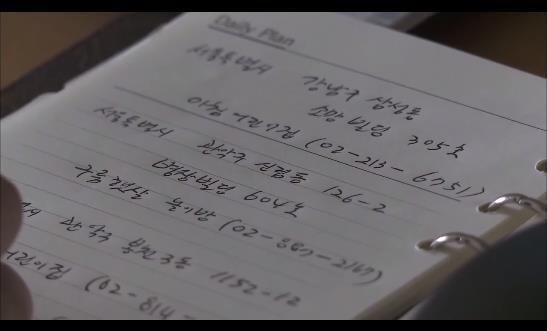 Daily Plan
서울특별시 강남구 삼성동
소망 빌딩 305호
아침 어린이집 (02-213-6751)
서울특별시 관악구 신림동 126-2
명상빌딩 604호
구름빵상 놀이방 (02-387-2167)
관악구 봉천3동 1152-12
어린이집 (02-814-